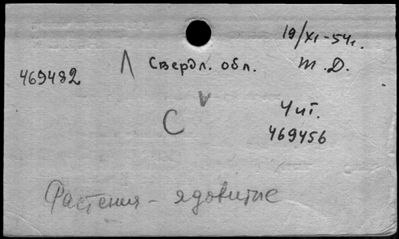 19/XI-54г.
469482 Λ Свердл. обл. т.Д.
С
Чит.
469456
Растения - ядовитые